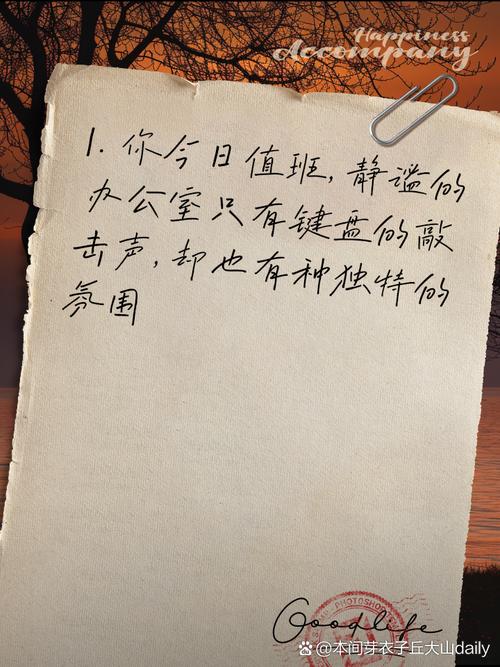 Happiness
Accompany
1. 你今日值班，静谧的
办公室只有键盘的敲
击声，却也有种独特的
氛围
PHOTOSHOP
Goodlife
本间芽衣子丘大山daily